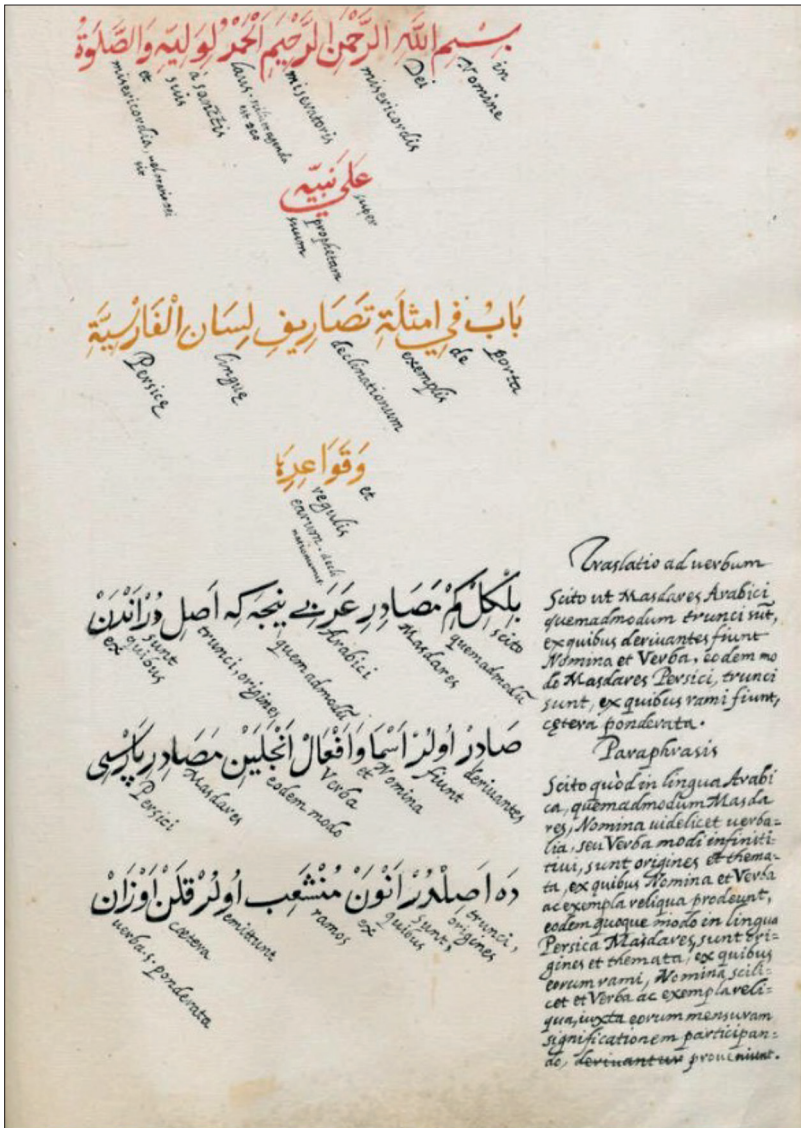 بِسْمِ اللهِ الرَّحْمٰنِ الرَّحِيمِ اَلْحَمْدُ لِوَلِيِّهِ وَالصَّلَوةُ
in
Nomine
Dei
misericordis
miseratoris
laus
est deo
à sanctis
suis
et
misericordia,
عَلَي نَبِيِّه
super
prophetam
suum
بَابْ فِي اَمْثِلَةِ تَصَارِيفِ لِسَانِ الْفَارْسِيَّةِ
porta
de
exemplis
declinationum
linguę
Persicę
وَقَوَاعِدِهَا
et
regulis
earum. decli
nationum.
بِلْكِلْ كِمْ مَصَادِرِ عَرَبِي نِيجَه كِه اَصِلْ دُرْ اَنْدَنْ
scito
quemadmodū
Masdares
Arabici
quemadmodū
trunci, origines
sunt
quibus
ex
صَادِرْ اُولُرْ اَسْمَا وَاَفْعَالْ اَنْجَلَيِنْ مَصَادِرِ پَارْسِي
deriuantes
fiunt
Nomina
et
Verba
eodem modo
Masdares
Persici
دَه اَصِلْدُرْ اَنْوَنْ مُنْشَعِبْ اُولُرْ قَلَنْ اَوْزَانْ
trunci,
origines
sunt,
quibus
ex
ramos
emittunt
cætera
uerba s. ponderata
Traslatio ad uerbum
Scito ut Masdares Arabici,
quemadmodum trunci sūt,
ex quibus deriuantes fiunt
Nomina et Verba, eodem mo
do Masdares Persici, trunci
sunt, ex quibus rami fiunt,
cętera ponderata.
Paraphrasis
Scito quòd in lingua Arabi
ca, quemadmodum Masda
res, Nomina uidelicet uerba=
lia, seu Verba modi infiniti=
tiui, sunt origines et thema=
ta, ex quibus Nomina et Verba
ac exempla reliqua prodeunt,
eodem quoque modo in lingua
Persica Masdares, sunt ori=
gines et themata, ex quibus
eorum rami, Nomina scili=
cet et Verba ac exempla reli=
qua, iuxta eorum mensuram
significationem participan=
do, deriuantur proueniunt.